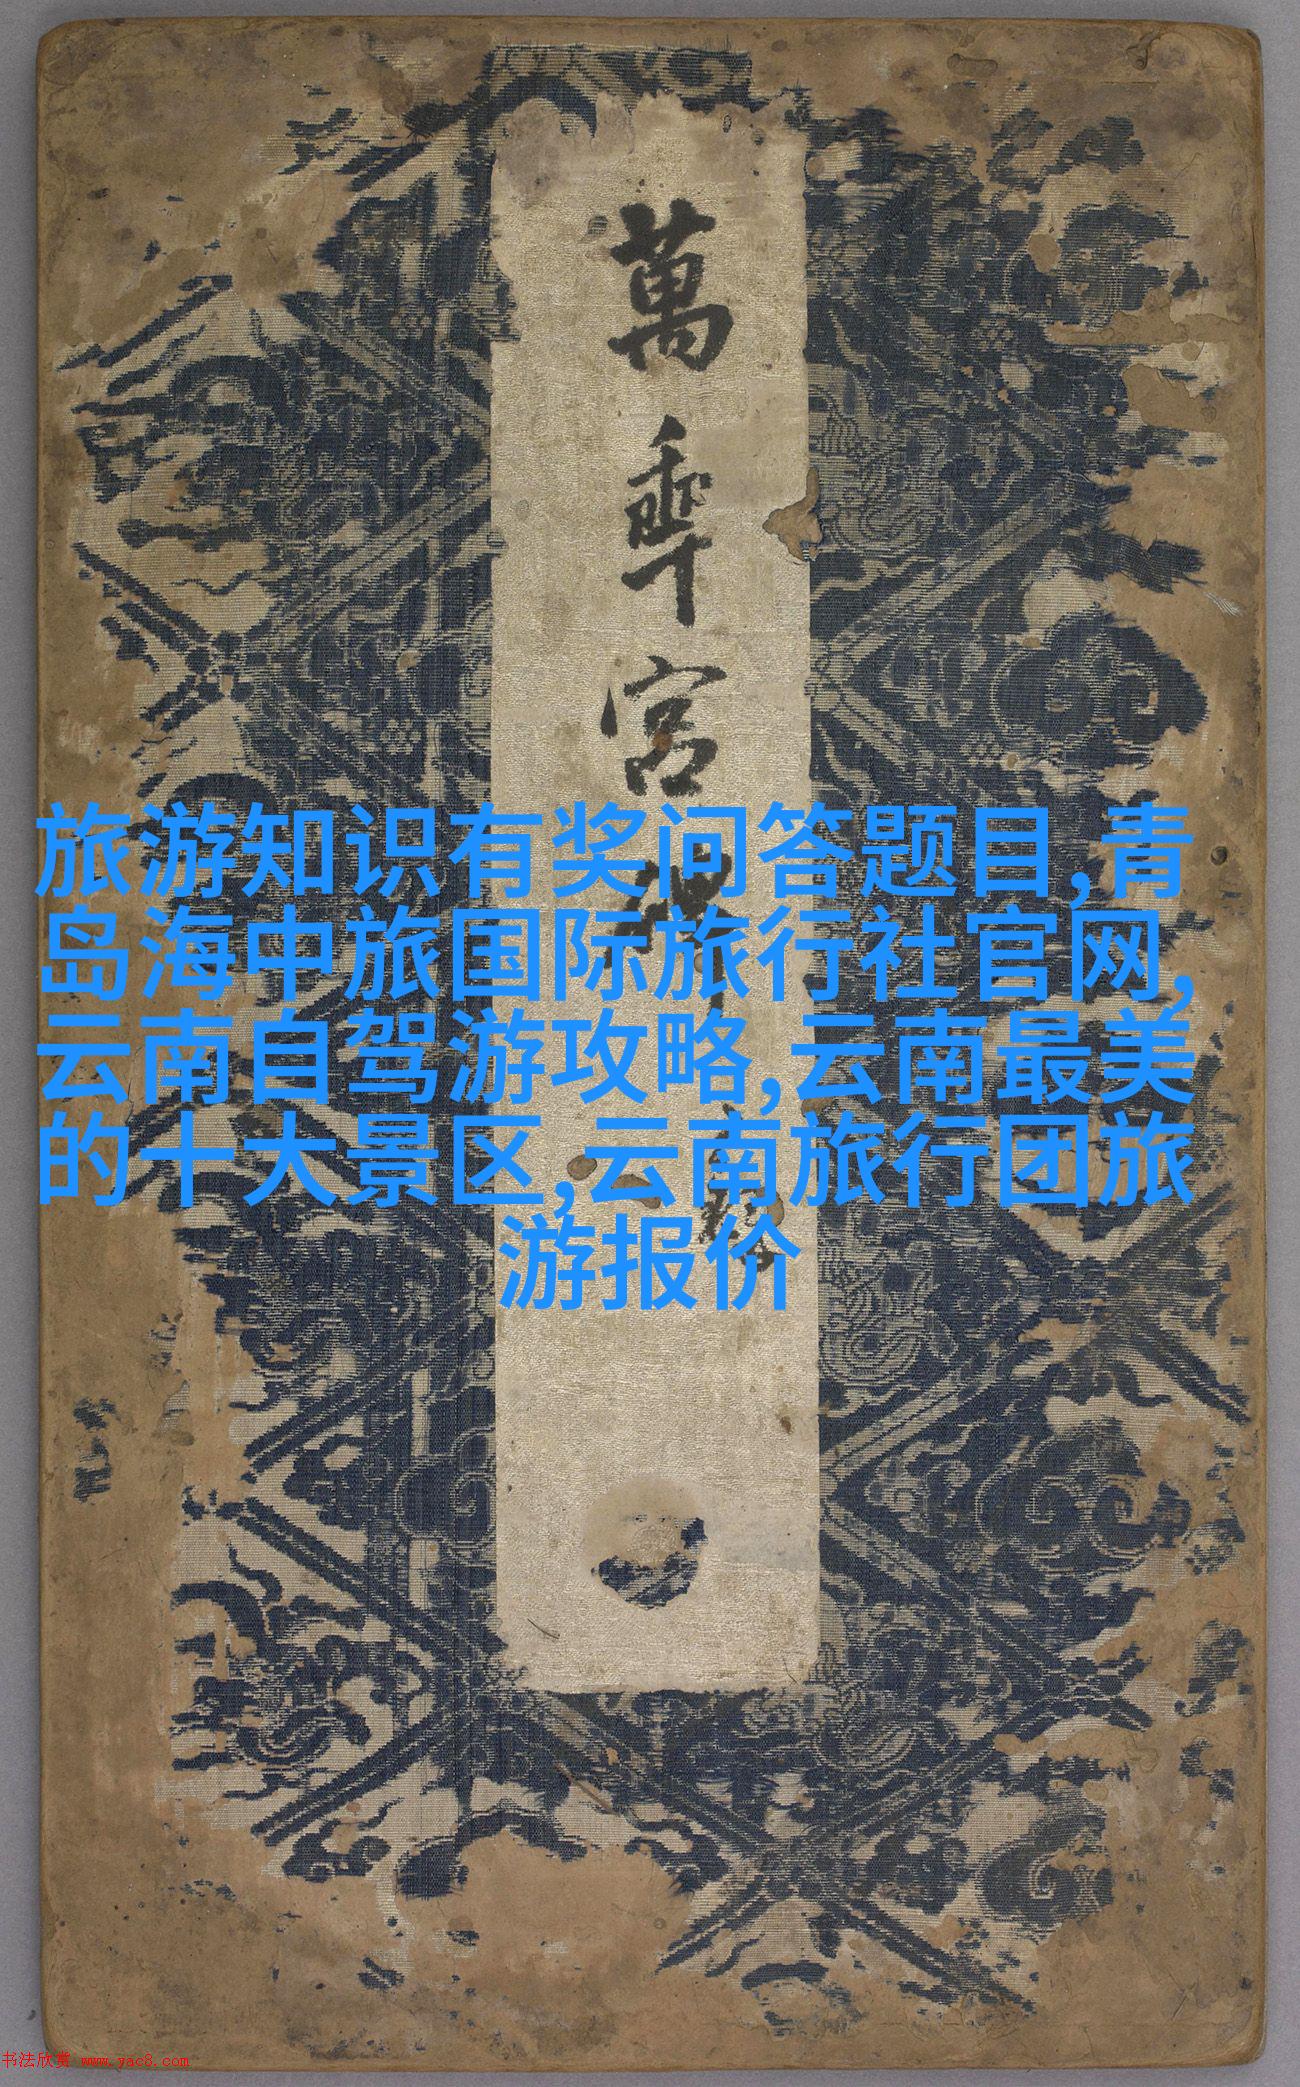 萬
年
宫
旅游知识有奖问答题目,青
岛海中旅国际旅行社官网,
云南自驾游攻略,云南最美
的十大景区,云南旅行团旅
游报价
书法欣赏 www.yac8.com